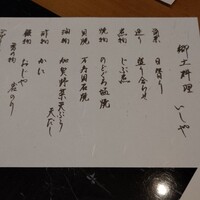 郷土料理 いしや
前菜 日替り
造り 盛り合わせ
煮物 じぶ煮
焼物 のどぐろ塩焼
貝焼 万寿貝石焼
油物 加賀野菜天ぷら 天だし
酢物 かに
飯物 おじや
香の物 岩のり